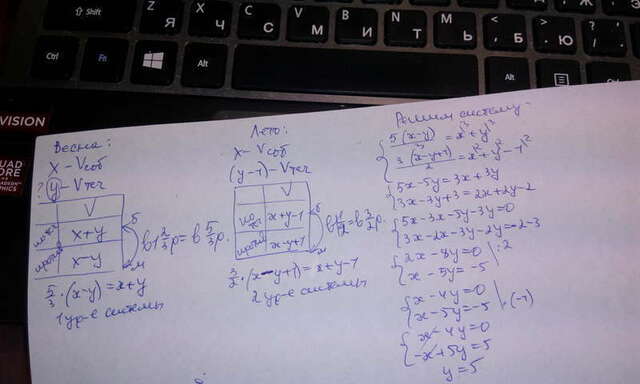 Shift
Z Я
X Ч
C С
V М
B И
N Т
M Ь
< , Б
> . Ю
? /
Ctrl
Fn
Alt
Alt
Ctrl
VISION
QUAD
CORE
RADEON
GRAPHICS
Весна:
x – Vсоб
? y – Vтеч
V
по теч x+y
против x-y
Б
М
в 1 2/3 р = в 5/3 р.
5/3 · (x-y) = x+y
1 ур-е системы
Лето:
x – Vсоб
(y-1) – Vтеч
V
по теч x+y-1
против x-y+1
Б
М
в 1 1/2 = в 3/2 р.
3/2 · (x-y+1) = x+y-1
2 ур-е системы
Решим систему:
5(x-y)/3 = x\3 + y\3
3(x-y+1)/2 = x\2 + y\2 - 1\2
5x-5y = 3x+3y
3x-3y+3 = 2x+2y-2
5x-3x-5y-3y=0
3x-2x-3y-2y=-2-3
2x-8y=0 |:2
x-5y=-5
x-4y=0
x-5y=-5 |·(-1)
x-4y=0
-x+5y=5
y=5